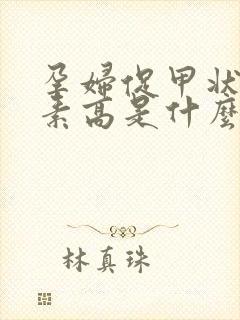 孕婦促甲狀
素高是什麼
林真珠